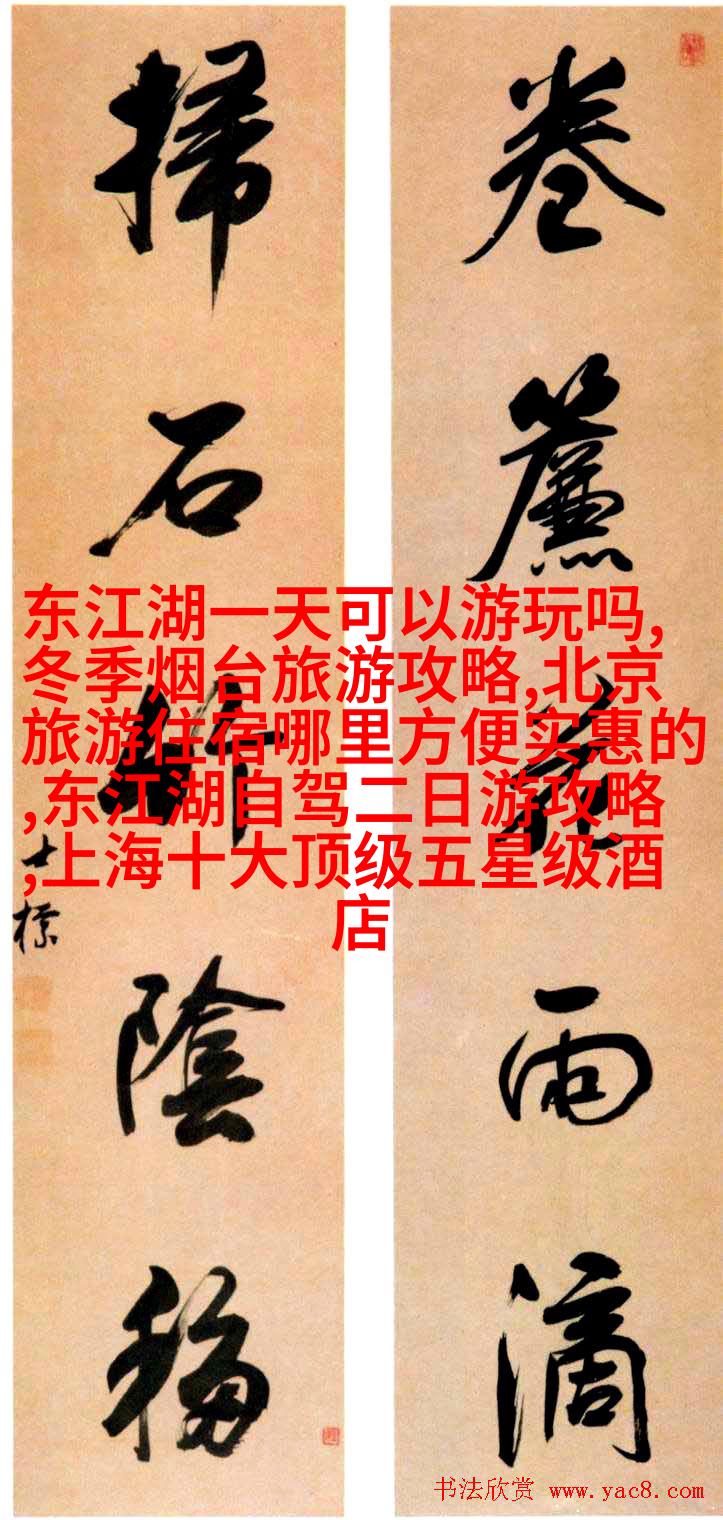 卷簾花雨滴
掃石竹陰移
士標
东江湖一天可以游玩吗,
冬季烟台旅游攻略,北京
旅游住宿哪里方便实惠的
,东江湖自驾二日游攻略
,上海十大顶级五星级酒
店
书法欣赏 www.yac8.com